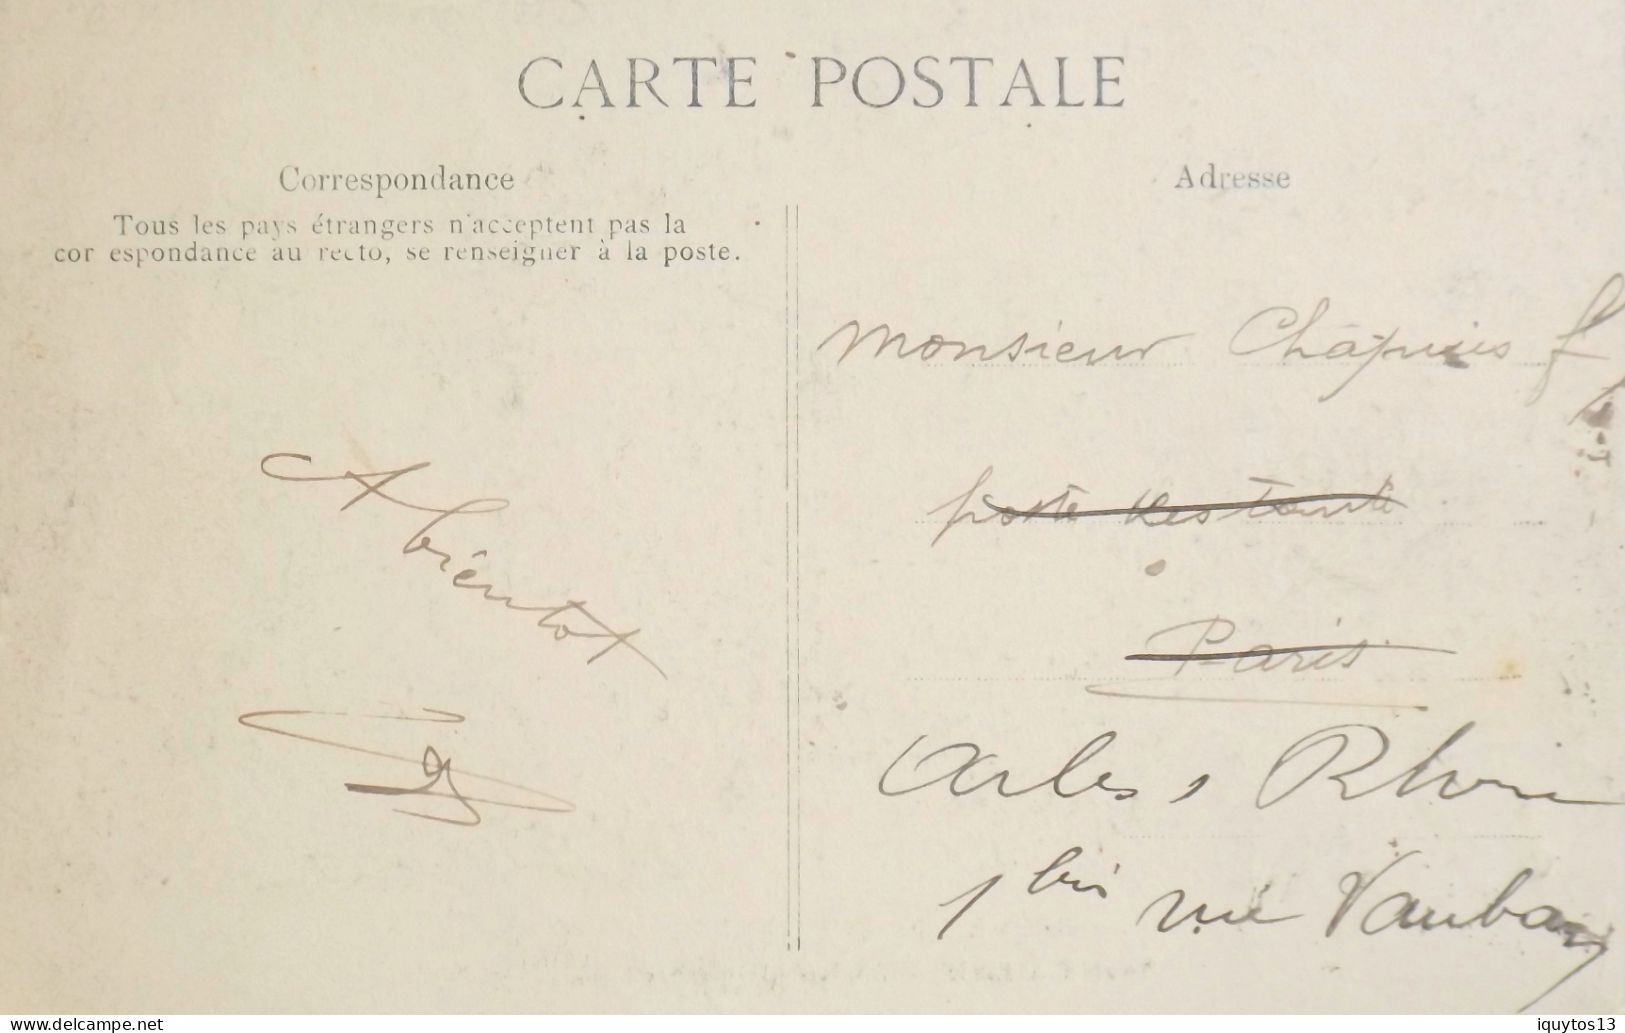 CARTE POSTALE
Correspondance
Tous les pays étrangers n'acceptent pas la
cor espondance au recto, se renseigner à la poste.
A bientot
Adresse
Monsieur Chapuis f
poste Restante
Paris
Arles s Rhone
1 bis rue Vauban
www.delcampe.net
iquytos13